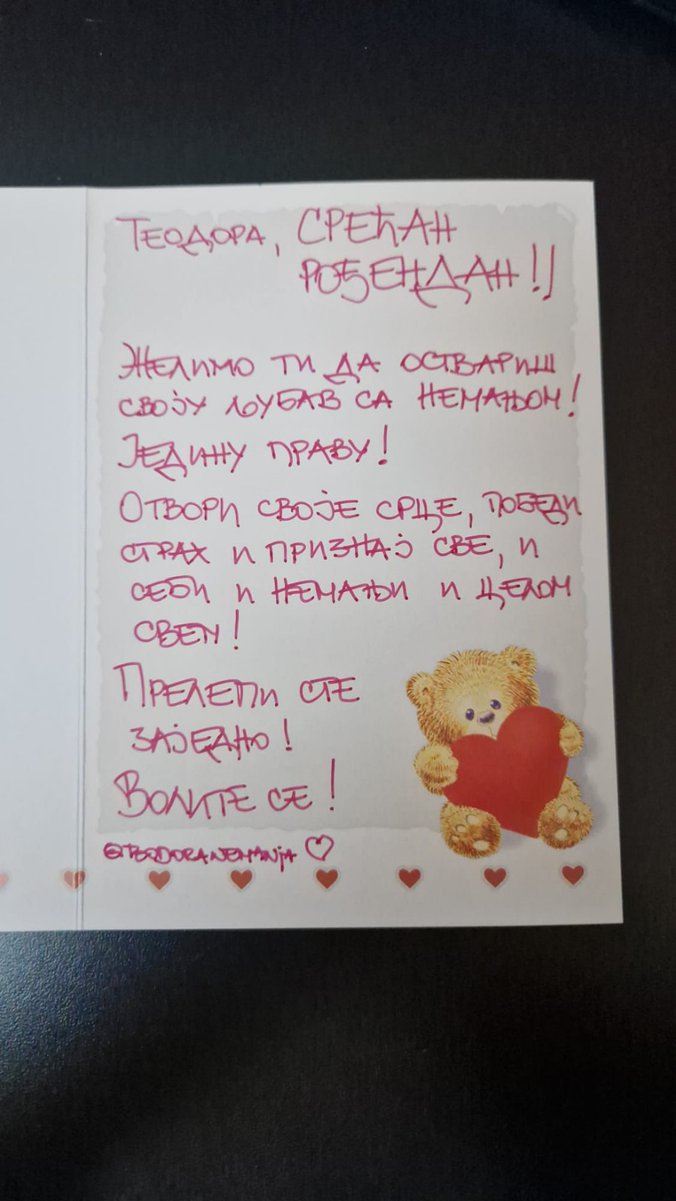 Теодора, СРЕЋАН
РОЂЕНДАН!!
Желимо ти да оствариш
своју љубав са Немањом!
Једину праву!
Отвори своје срце, победи
страх и признај све, и
себи и Немањи и целом
свету!
Прелепи сте
заједно!
Волите се!
@TEODORANEMANJA ♡